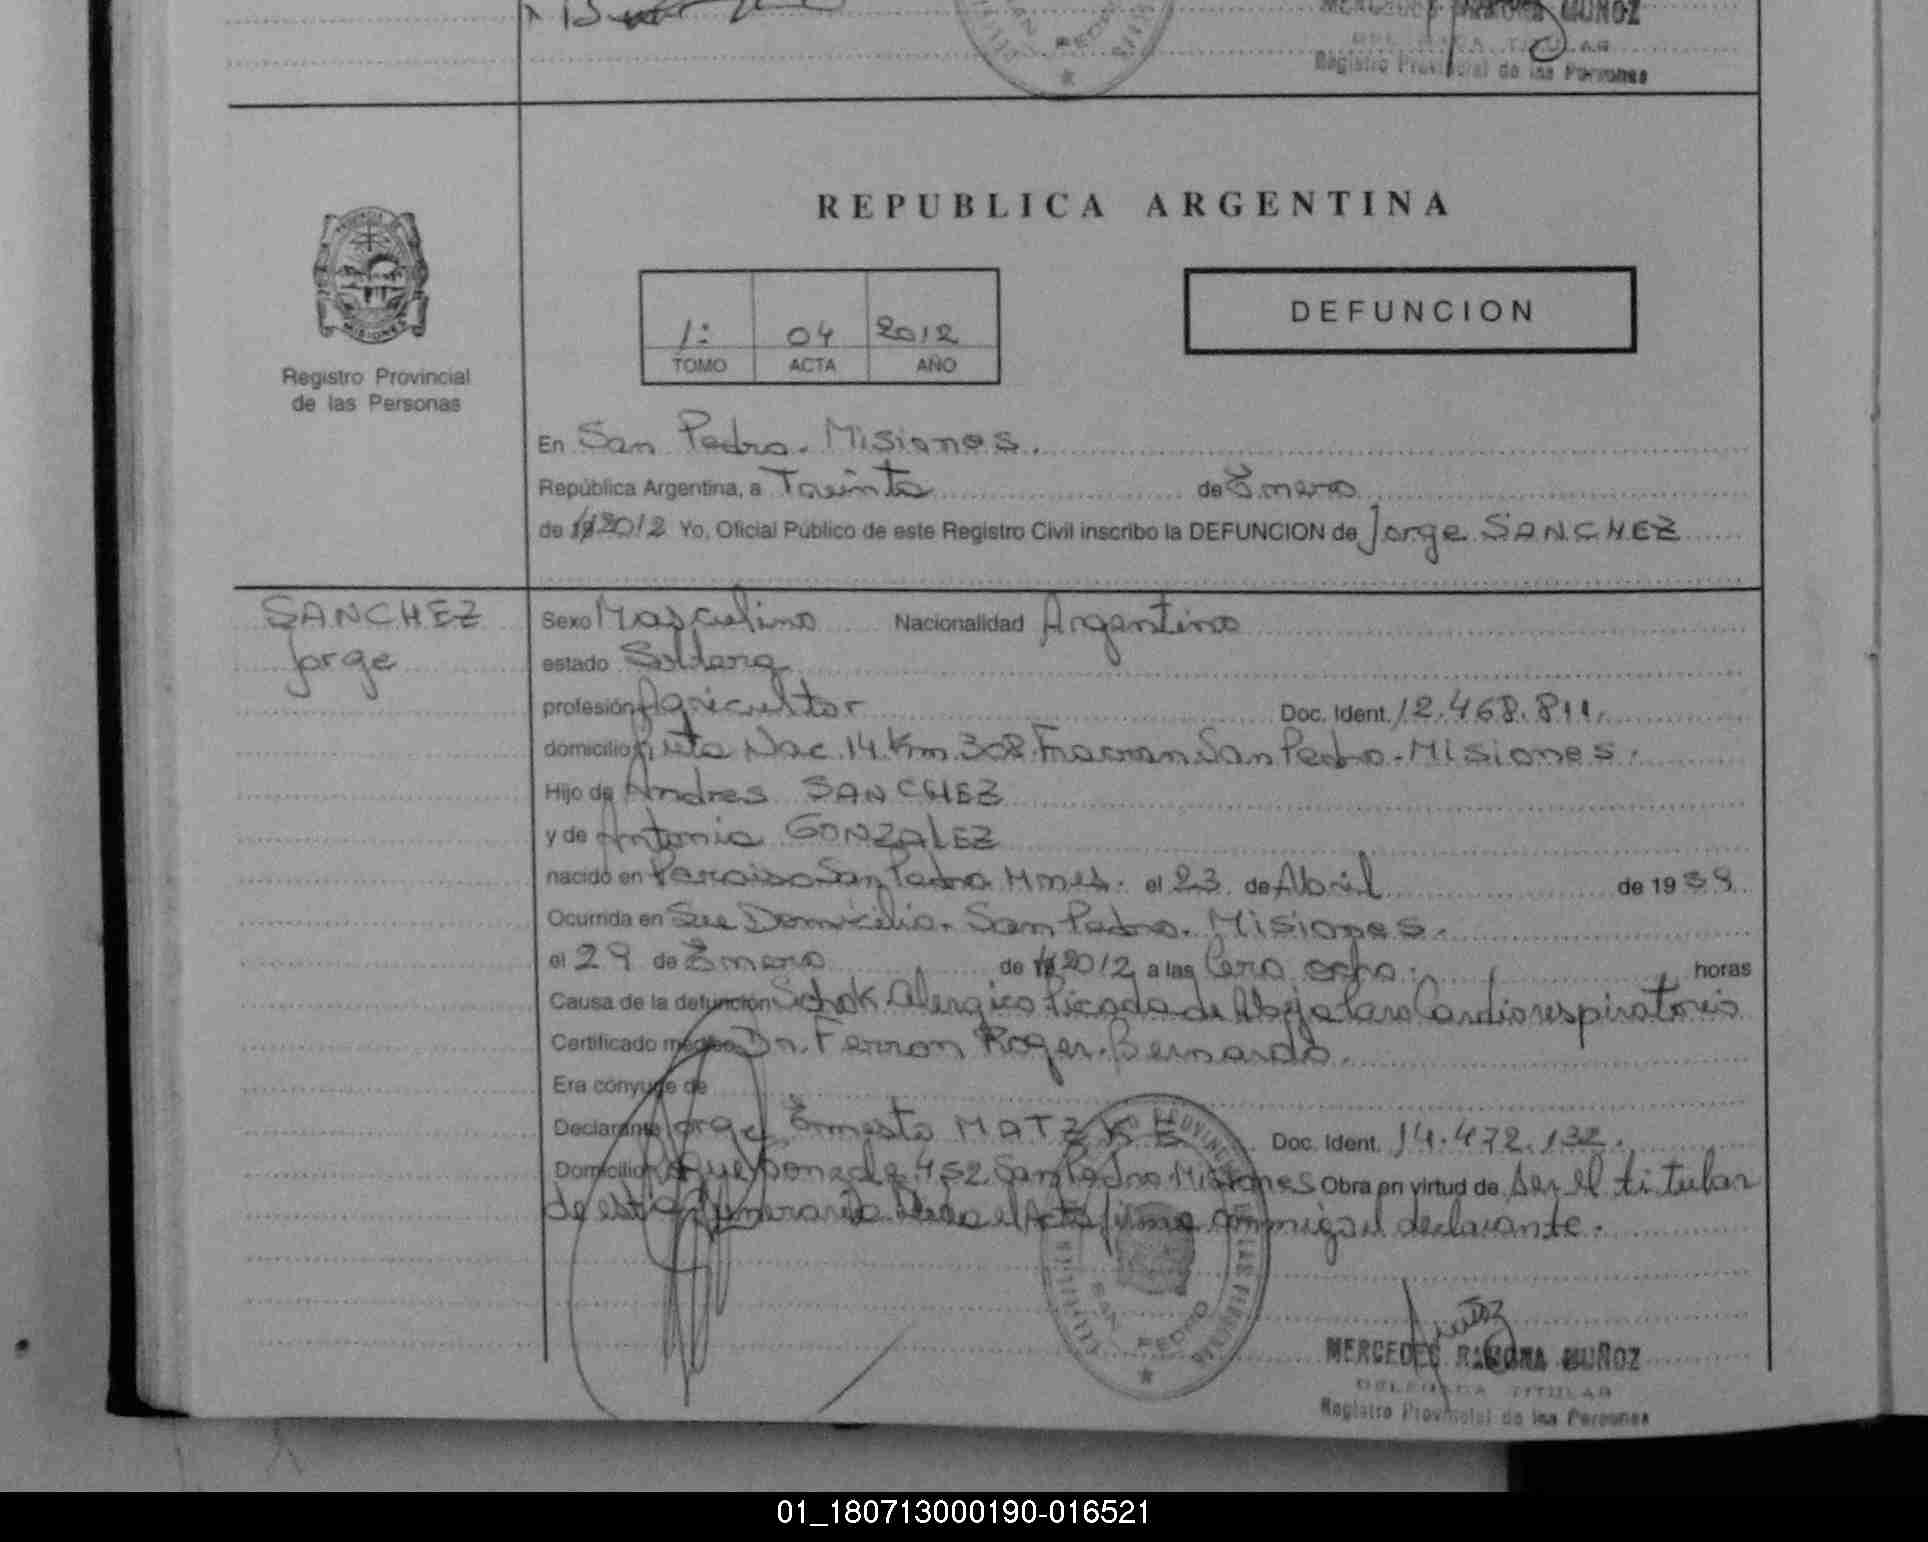 MERCEDES RAMONA MUÑOZ
DELEGADA TITULAR
Registro Provincial de las Personas
SAN PEDRO
REPUBLICA ARGENTINA
PROVINCIA
MISIONES
1: 04 2012
TOMO ACTA AÑO
DEFUNCION
Registro Provincial
de las Personas
En San Pedro. Misiones.
República Argentina, a Treinta de Enero
de 19 2012 Yo, Oficial Público de este Registro Civil inscribo la DEFUNCION de Jorge SANCHEZ
SANCHEZ
Jorge
Sexo Masculino Nacionalidad Argentina
estado Soltero
profesión Agricultor Doc. Ident. 12.468.811.
domicilio Ruta Nac. 14. Km. 308. San Pedro. Misiones.
Hijo de Andres SANCHEZ
y de Antonia GONZALEZ
nacido en Paraiso San Pedro Mnes. el 23 de Abril de 19
Ocurrida en Su Domicilio. San Pedro. Misiones.
el 29 de Enero de 2012 a las Cero ocho. horas
Causa de la defunción Schok Alergico Picada de Abeja Paro Cardiorespiratorio
Certificado médico Dr. Ferron Roger. Bernardo.
Era cónyuge de
Declarante Jorge Ernesto MATZKE Doc. Ident. 14.472.132.
Domicilio 452 San Pedro Misiones Obra en virtud de ser el titular
de esta funeraria. el Acta firma conmigo el declarante.
SAN PEDRO
MERCEDES RAMONA MUÑOZ
DELEGADA TITULAR
Registro Provincial de las Personas
01_180713000190-016521